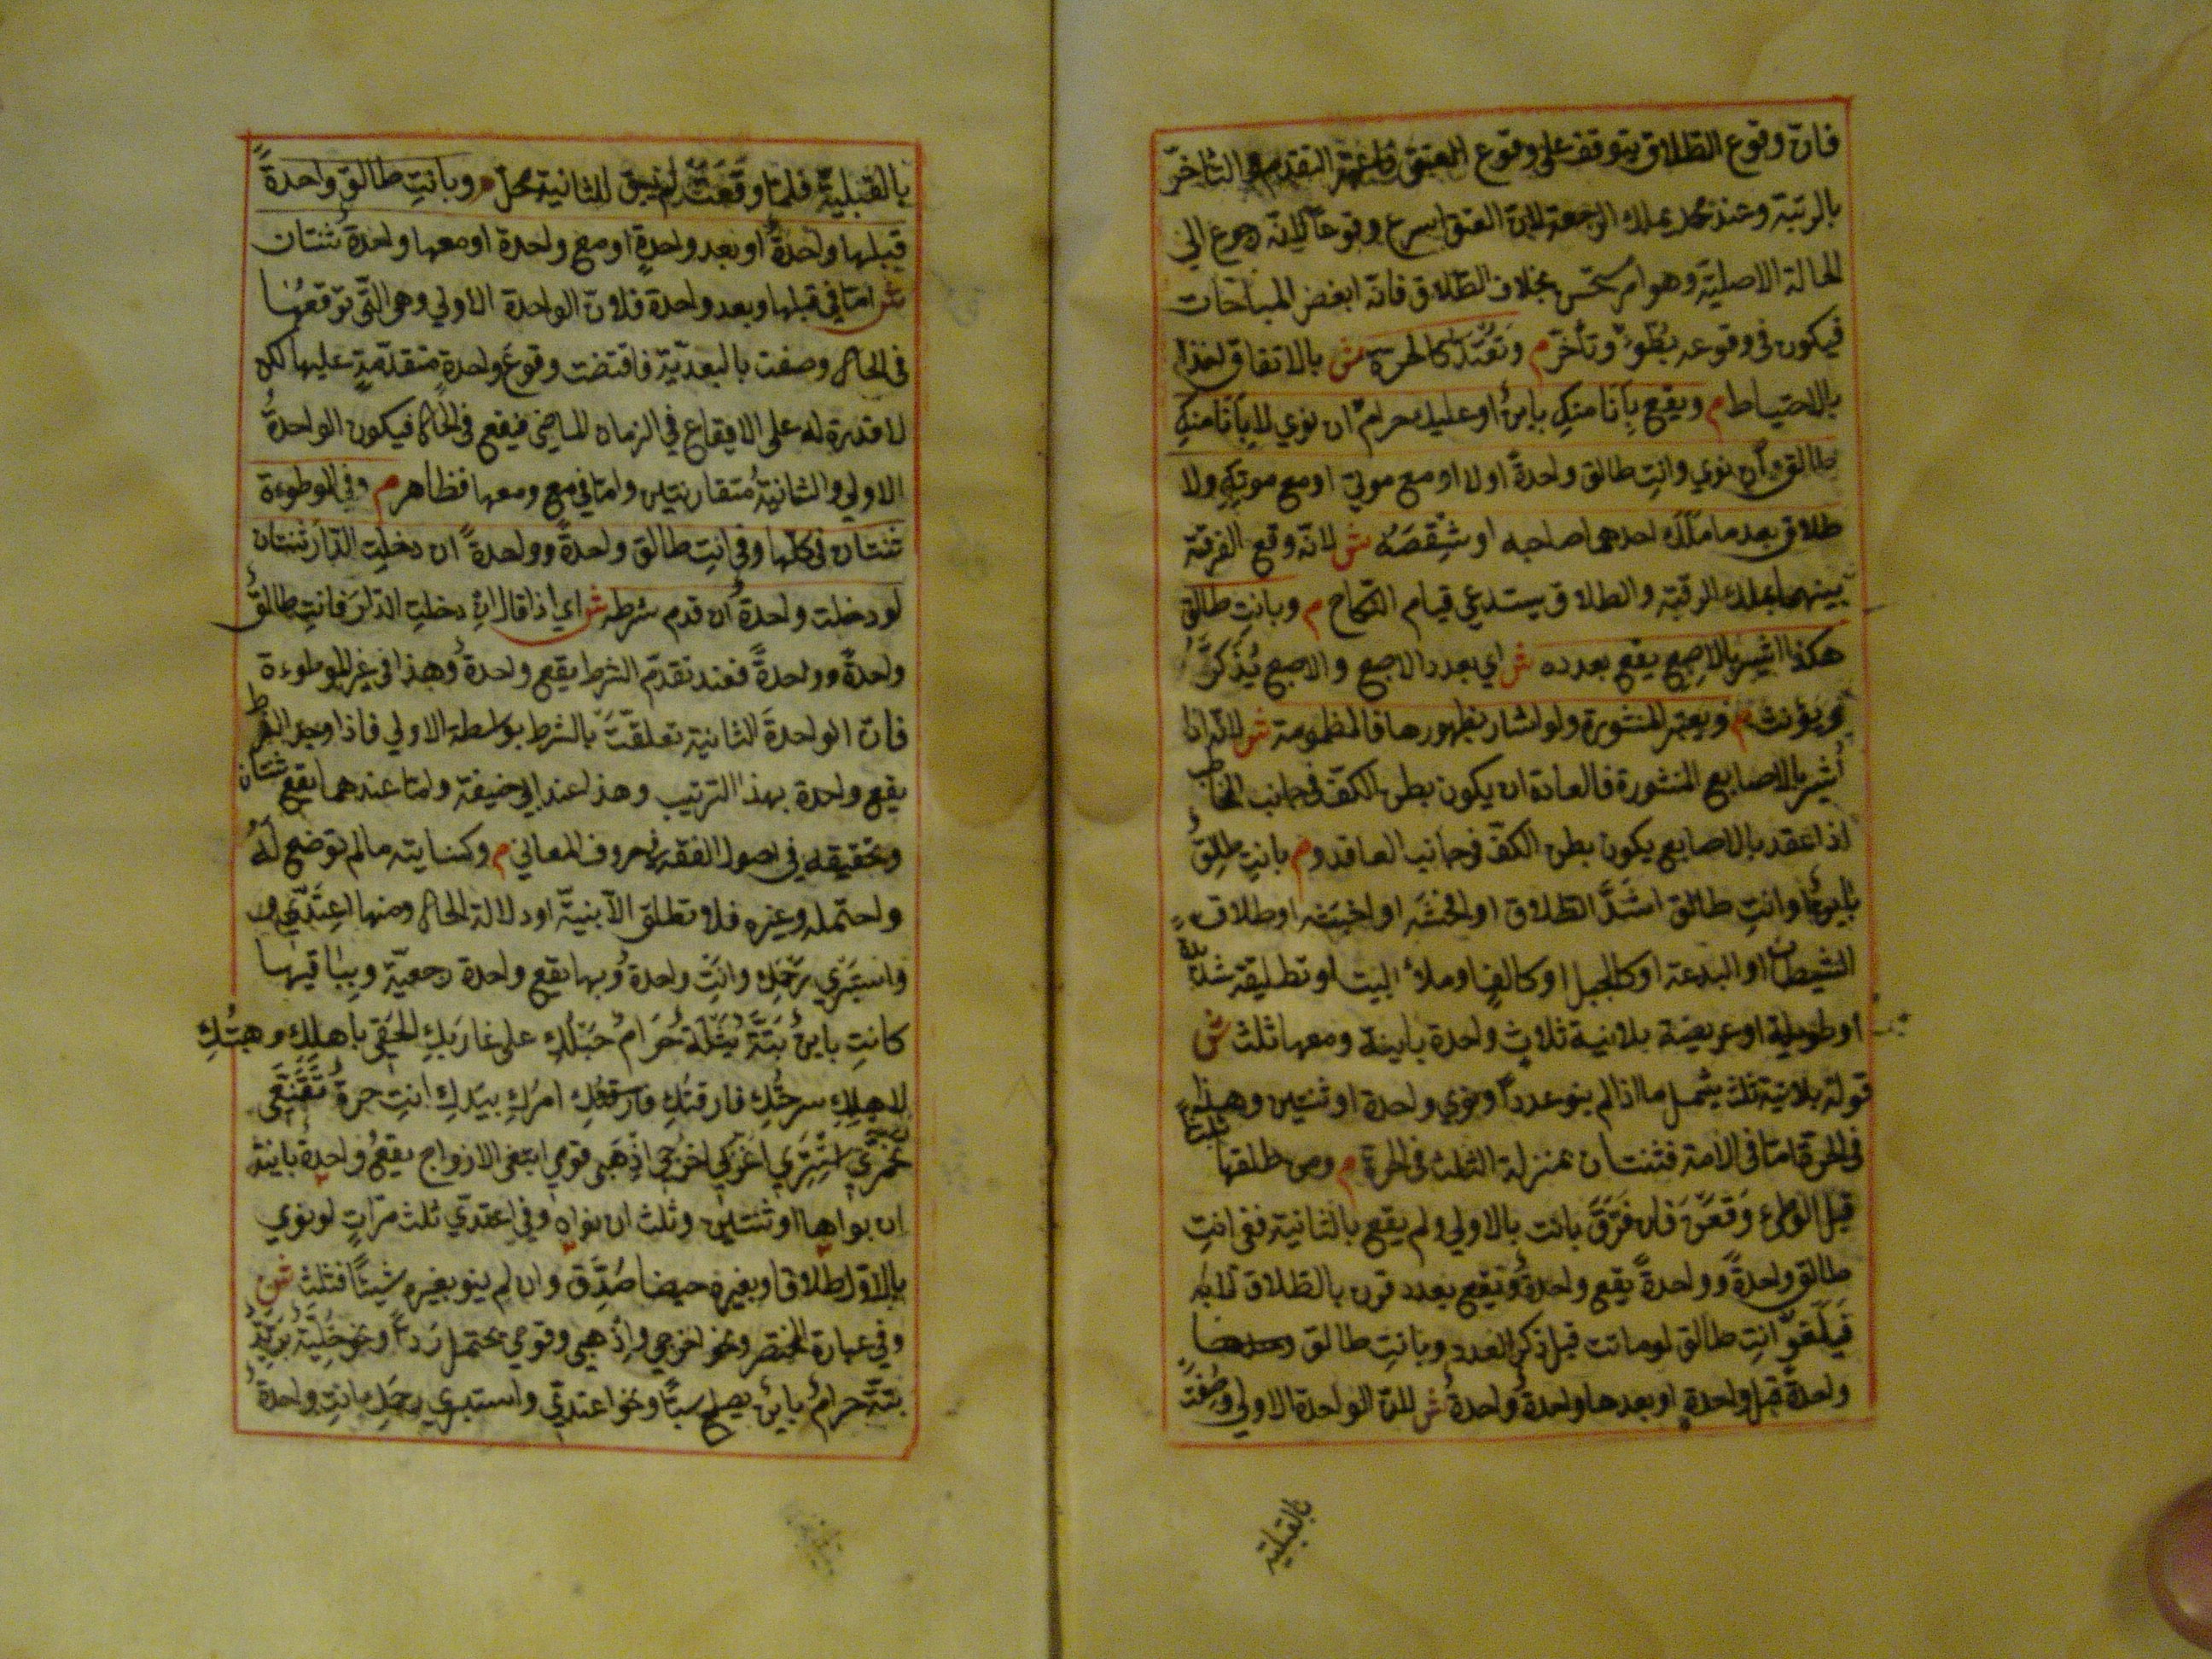 فانّ وقوع الطّلاق يتوقف على وقوع العتق التقدم والتأخرّ
بالرتبة وعند محمّد يملك الرجعة لانّ العتق اسرع وقوعاً لانّه رجوع الى
الحالة الاصليّة وهو امر مستحسن بخلاف الطّلاق فانّه ابغض المباحات
فيكون فى وقوعه بُطوءٌ وتأخرّ م وتَعْتَدُّ كالحرّة ش بالاتفاق اخذا
بالاحتياط م ويقع بِأَنَا منكِ باينٌ او عليك حرامٌ ان نوي لا بِأَنَا منكِ
طالق وان نوي وانتِ طالق واحدةً اولا او مع موتي او مع موتِكِ ولا
طلاق بعد ما مَلَكَ احدهما صاحبه او شِقْصَهُ ش لانّه وقع الفرقة
بينهما بملك الرقبة والطلاق يستدعي قيام النّكاح م وبانتِ طالق
هكذا اشير بالاصبع يقع بعدده ش اي بعدد الاصبع والاصبع يُذَكَّرُ
ويؤنث م ويعتبر المنشورة ولو اشار بظهورها فالمضمومة ش لانّه اذا
أُشير بالاصابع المنشورة فالعادة ان يكون بطن الكفّ فى جانب المخاطب
اذا عقد بالاصابع يكون بطن الكفّ فى جانب العاقد م وبانتِ طالقٌ
باينٌ او انتِ طالق اشَدَّ الطّلاق او افحشَه او اخبثه او طلاق
الشيطان او البدعة او كالجبل او كالفٍ او ملأَ البيت او تطليقة شديدة
او طويلة او عريضة بلا نية ثلاثٍ واحدة باينة ومعها ثلث ش
قوله بلا نيّة ثلث يشمل ما اذا لم ينو عدداً او نوي واحدة او ثنتين وهذا
فى الحرّة امّا فى الامة فثنتان بمنزلة الثلث فى الحرّة م ومن طلقها ثلثاً
قبل الوطيء وَقَعْنَ فان فَرَّقَ بانت بالاولي ولم يقع بالثانية ففى انتِ
طالق واحدةً وواحدةً يقع واحدةٌ ويقع بعدد قرن بالطّلاق لا به
فَيَلْغوُ انتِ طالق لو ماتت قبل ذكر العدد وبانتِ طالق
واحدةً قبل واحدةٍ او بعدها واحدةٌ واحدةٌ ش لانّ الواحدة الاولي وصفت
بالقبلية
بالقبليّة فلمّا وقَعَتْ لم يبق للثانية محلّ م وبانتِ طالق واحدةً
قبلها واحدةٌ او بعد واحدةٍ او مع واحدة او معها واحدةٌ ثنتان
ش امّا فى قبلها وبعد واحدة فلانّ الواحدة الاولي وهى التّى توقعُها
فى الحال وصفت بالبعديّة فاقتضت وقوع واحدةٍ متقدّمةٍ عليها لكن
لا قدرة له على الايقاع فى الزمان الماضي فيقع فى الحال فيكون الواحدةُ
الاولي والثانيةُ متقارنتين وامّا فى مع ومعها فظاهر م وفى الموطوءة
ثنتان فى كلّها وفى انتِ طالق واحدةً وواحدةً ان دخلتِ الدّار ثنتان
لو دخلت واحدةٌ ان قدم شرطه ش اي اذا قال ان دخلتِ الدّار فانتِ طالقٌ
واحدةً وواحدةً فعند تقدّم الشرط يقع واحدةٌ وهذا فى غير الموطوءة
فانّ الواحدةَ الثانية تعلّقت بالشرط بواسطة الاولي فاذا وجد الشرط
يقع واحدة بهذا الترتيب وهذا عند ابي حنيفة وامّا عندهما يقع ثنتان
وتحقيقه فى اصول الفقه فى حروف المعاني م وكنايته ما لم توضع لهُ
واحتمله وغيره فلا تطلق الّا بنيّة او دلالة الحال ومنها اِعتَدّي و
واستبرَي رَحِمَكِ وانتِ واحدةٌ وبها يقع واحدة رجعيّة وبباقيها
كانتِ باينٌ بَتَّةٌ بَتْلَةٌ حَرَامٌ حَبْلُكِ على غاربَكِ الحَقِي باهلك وهبتُكِ
لاهلِكِ سرحتُكِ فارقتُكِ امرُكِ بيدِكِ انتِ حرةٌ تَقَنَّعَى
تخمّري اسْتَتِرِي اغربي اخرُجي اذْهَبى قومي ابتغى الازواج يقعُ واحدة باينة
ان نواها او ثنتين وثلث ان نواه وفى اعتدّي ثلث مرّات لو نوي
بالاوّل طلاقا وبغيره حيضا صُدِّق وان لم ينو بغيره شيئاً فثلث ش
وفى عبارة المختصر ونحو اخرجي واذهبى وقومي يحتمل رَداً ونحو خَلِيَّةٌ بَرِيَّةٌ
بتّة حرامٌ باينٌ يصلح سبّاً ونحو اعتدّي واستبري رحمكِ انتِ واحدةٌ